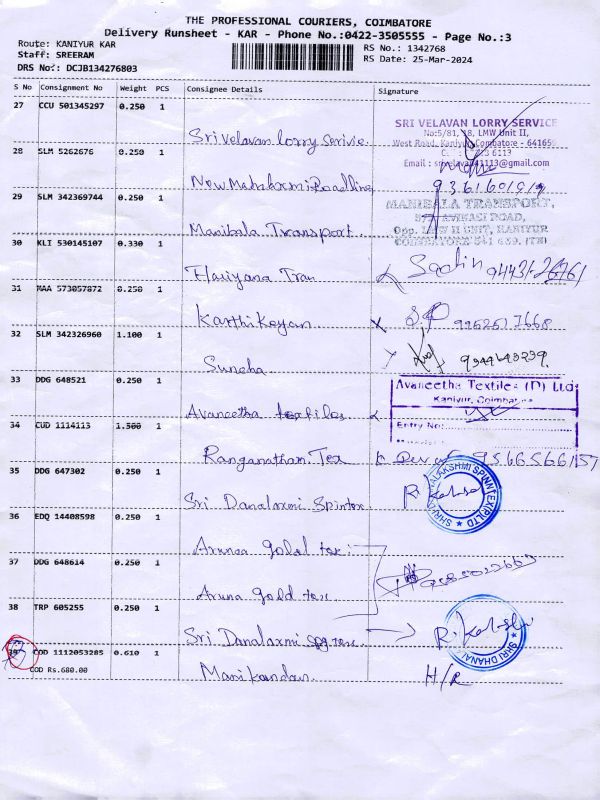 THE PROFESSIONAL COURIERS, COIMBATORE
Delivery Runsheet - KAR - Phone No.:0422-3505555 - Page No.:3
Route: KANIYUR KAR
RS No.: 1342768
Staff: SREERAM
RS Date: 25-Mar-2024
DRS No.: DCJB134276803
S No Consignment No Weight PCS Consignee Details Signature
27 CCU 501345297 0.250 1
SRI VELAVAN LORRY SERVICE
No:5/81, 18, LMW Unit II,
Sri Velavan lorry Servie
West Road, Kaniyur, Coimbatore - 641659
28 SLM 5262676 0.250 1
6113
Email : srivelavan41113@gmail.com
New Mahalaxmi Roadline
29 SLM 342369744 0.250 1
MANIBALA TRANSPORT,
AVINASI ROAD,
Manibala Transport
Opp. LMW II UNIT, KANIYUR
30 KLI 530145107 0.330 1
COIMBATORE-641 659. (TN)
Hariyana Tran
Sachin
31 MAA 573057872 0.250 1
Karthikeyan
32 SLM 342326960 1.100 1
Suneha
33 DDG 648521 0.250 1
Avaneetha Textiles (P) Ltd
Kaniyur, Coimbatore
Avaneetha textiles
34 CUD 1114113 1.500 1
Entry No:
Ranganathan Tex
35 DDG 647302 0.250 1
SHRI DHANALAKSHMI SPINNTEX (P) LTD
Sri Danalaxmi Spintex
36 EDQ 14408598 0.250 1
Aruna gold tex
37 DDG 648614 0.250 1
Aruna gold tex
38 TRP 605255 0.250 1
Sri Danalaxmi
SHRI DHANAL
39 COD 1112053285 0.610 1
COD Rs.680.00
Manikandan
H/R